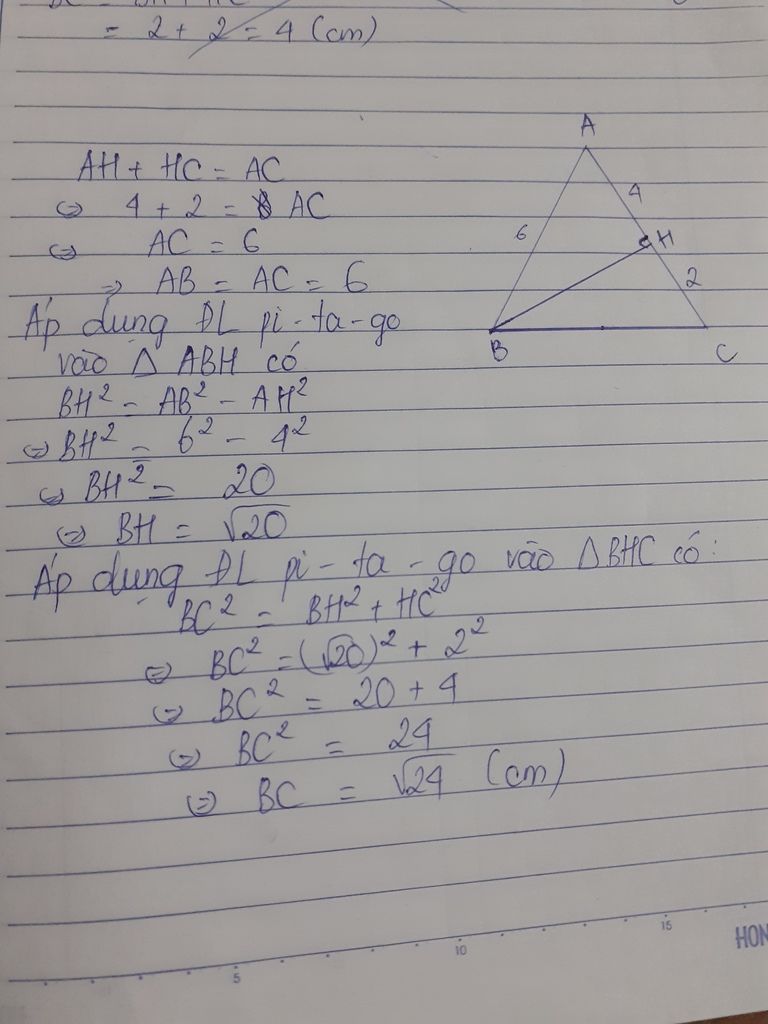 = 2 + 2 = 4 (cm)
A
AH + HC = AC
4
⇔ 4 + 2 = AC
6
H
⇔ AC = 6
2
⇒ AB = AC = 6
B
C
Áp dụng ĐL pi-ta-go
vào Δ ABH có
BH² = AB² - AH²
⇔ BH² = 6² - 4²
⇔ BH² = 20
⇔ BH = √20
Áp dụng ĐL pi-ta-go vào ΔBHC có:
BC² = BH² + HC²
⇔ BC² = (√20)² + 2²
⇔ BC² = 20 + 4
⇔ BC² = 24
⇔ BC = √24 (cm)
5
10
15
HON